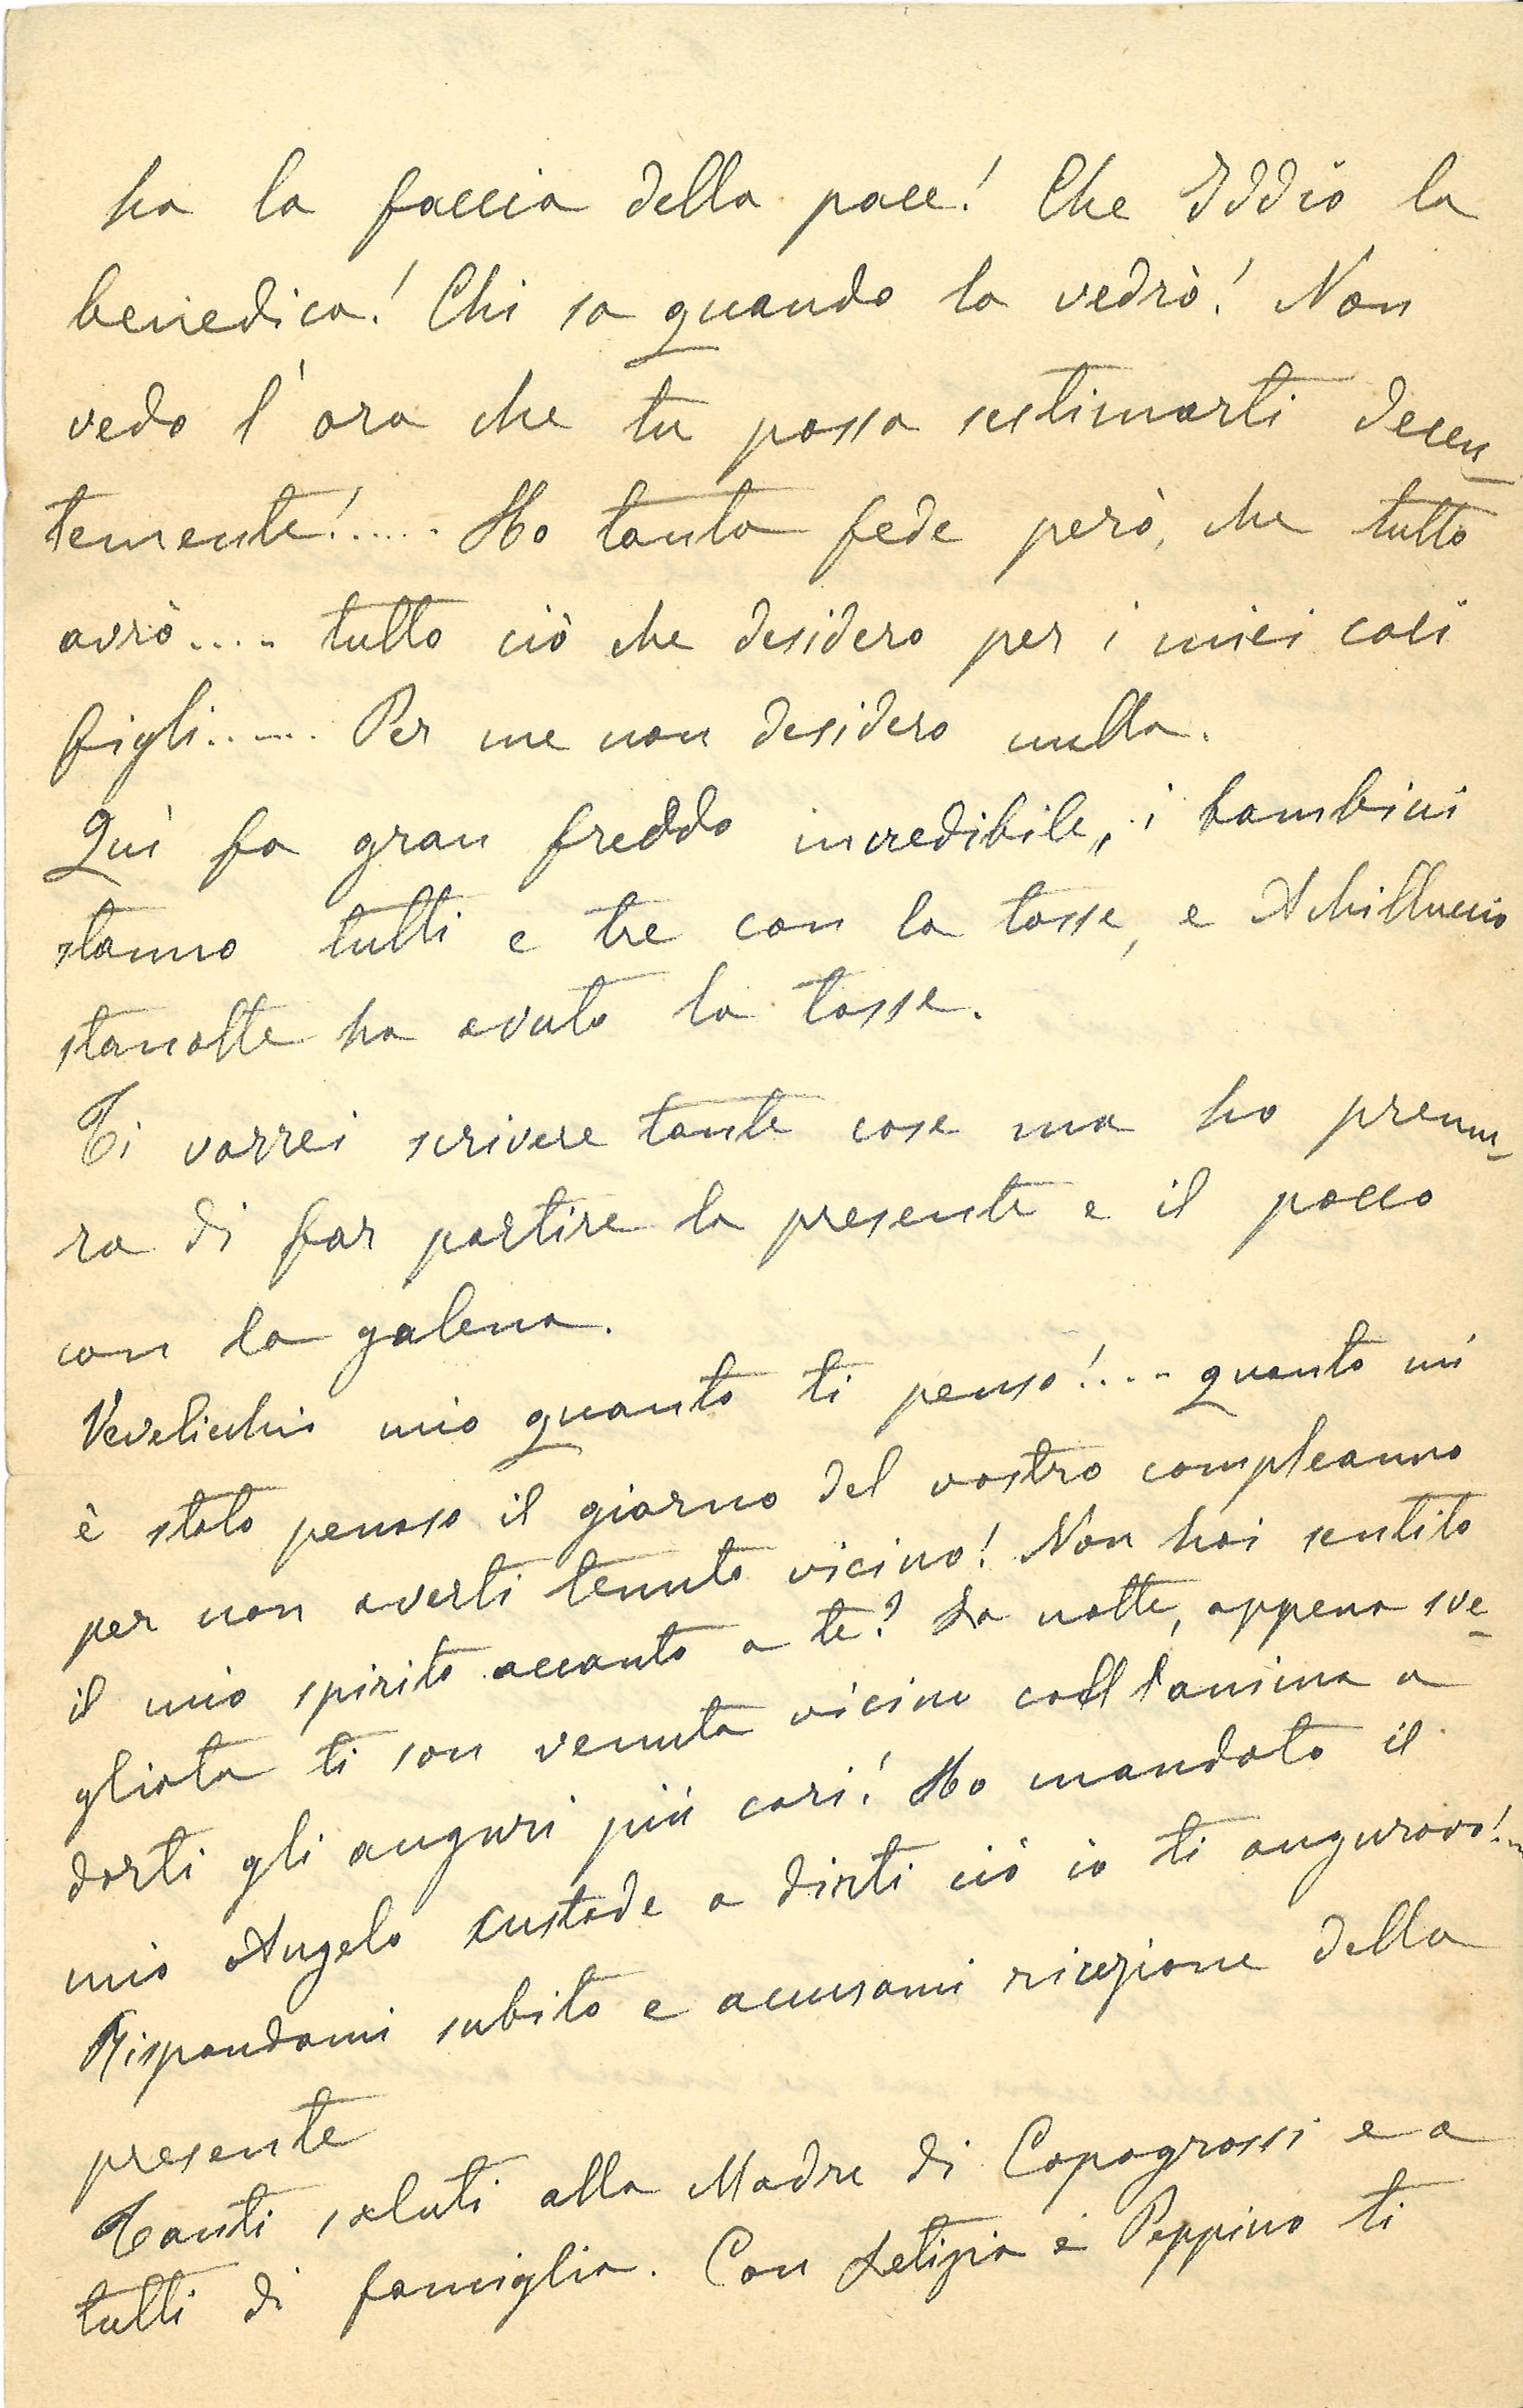 ha la faccia della pace! Che Iddio la
benedica! Chi sa quando la vedrò! Non
vedo l'ora che tu possa sistimarti decen-
temente!..... Ho tanta fede però, che tutto
avrò.... tutto ciò che desidero per i miei cari
figli..... Per me non desidero nulla.
Quì fa gran freddo incredibile, i bambini
stanno tutti e tre con la tosse, e Achilluccio
stanotte ha avuto la tosse.
Ti vorrei scrivere tante cose ma ho premu-
ra di far partire la presente e il pacco
con la galena.
mio quanto ti penso!.... quanto mi
è stato penoso il giorno del vostro compleanno
per non averti tenuto vicino! Non hai sentito
il mio spirito accanto a te? La notte, appena sve-
gliata ti son venuta vicino coll'anima a
darti gli auguri più cari! Ho mandato il
mio Angelo custode a dirti ciò io ti auguravo!..
Rispondami subito e accusami ricezione della
presente
Tanti saluti alla Madre di Capograssi e a
tutti di famiglia. Con Letizia e Peppino ti